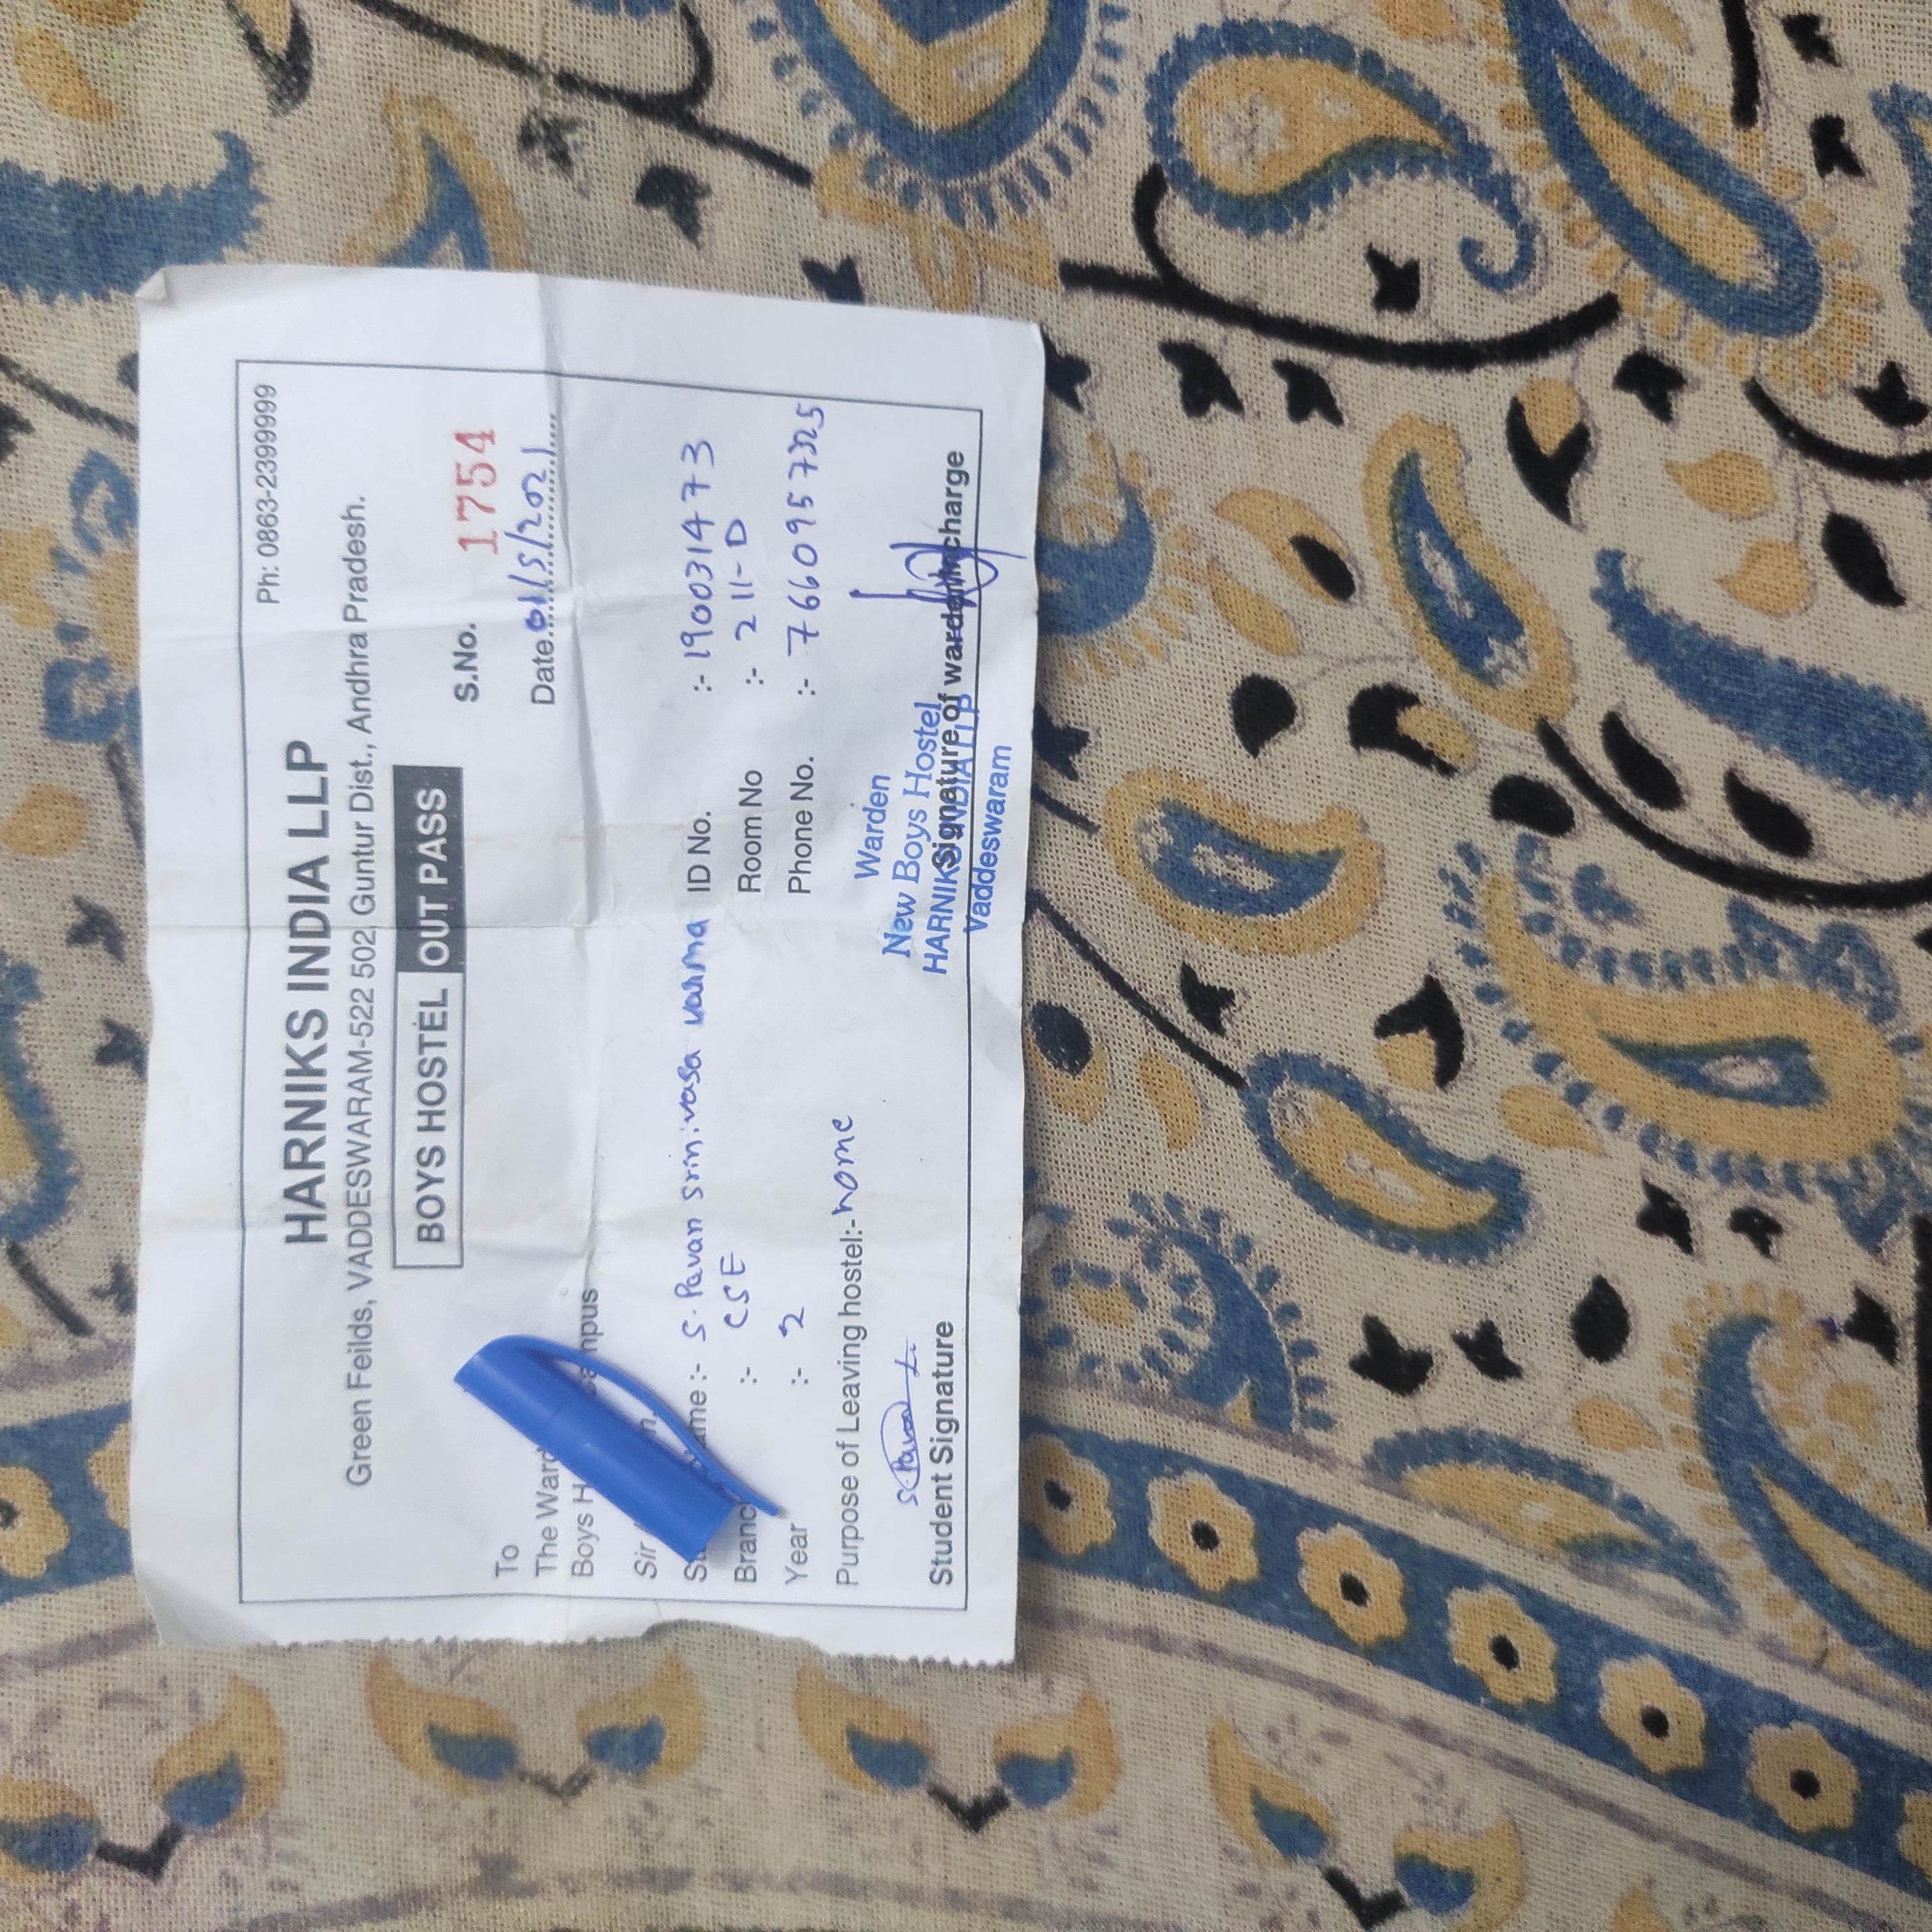 Ph: 0863-2399999
HARNIKS INDIA LLP
Green Feilds, VADDESWARAM-522 502, Guntur Dist., Andhra Pradesh.
BOYS HOSTEL OUT PASS
S.No. 1754
To
Date 01/5/2021
The Ward
Boys H
Sir
:- S. Pavan Srinivasa varma ID No. :- 190031473
Branc :- CSE Room No :- 211-D
Year :- 2 Phone No. :- 7660957325
Purpose of Leaving hostel:- home
Warden
New Boys Hostel
HARNIKS INDIA LLP
Vaddeswaram
Student Signature Signature of warden/Incharge